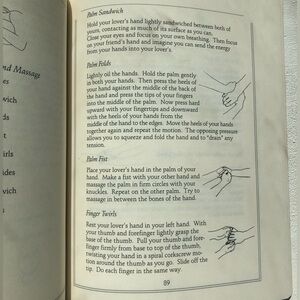 nd Massage
es
wich
ds
t
irls
ides
wich
es
Palm Sandwich
Hold your lover's hand lightly sandwiched between both of
yours, contacting as much of its surface as you can.
Close your eyes and focus on your own breathing. Then focus
on your friend's hand and imagine you can send the energy
from your hands into your lover's.
Palm Folds
Lightly oil the hands. Hold the palm gently
in both your hands. Then press the heels of
your hand against the middle of the back of
the hand and press the tips of your fingers
into the middle of the palm. Now press hard
upward with your fingertips and downward
with the heels of your hands from the
middle of the hand to the edges. Move the heels of your hands
together again and repeat the motion. The opposing pressure
allows you to squeeze and fold the hand and to "drain" any
tension.
Palm Fist
Place your lover's hand in the palm of your
hand. Make a fist with your other hand and
massage the palm in firm circles with your
knuckles. Repeat on the other palm. Try to
massage in between the bones of the hand.
Finger Twirls
Rest your lover's hand in your left hand. With
your thumb and forefinger lightly grasp the
base of the thumb. Pull your thumb and fore-
finger firmly from base to top of the thumb,
twisting your hand in a spiral corkscrew mo-
tion around the thumb as you go. Slide off the
tip. Do each finger in the same way
89